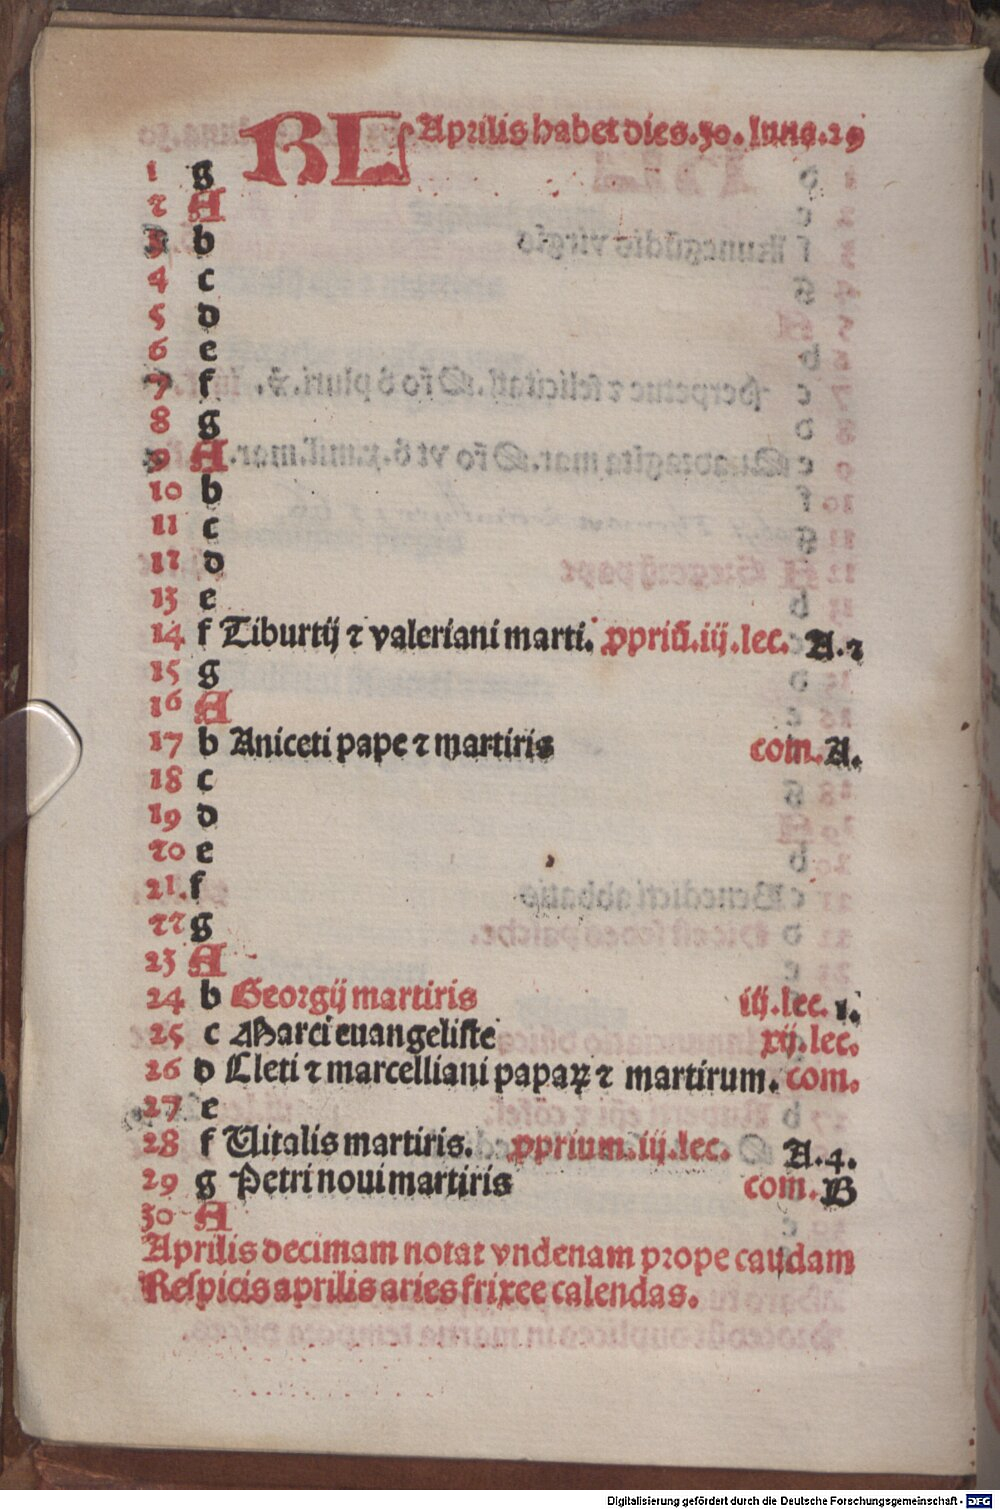 KL Aprilis habet dies.30. luna.29
1 g
2 A
3 b
4 c
5 d
6 e
7 f
8 g
9 A
10 b
11 c
12 d
13 e
14 f Tiburtij ⁊ valeriani marti. ꝓpriū.iij.lec. A.2
15 g
16 A
17 b Aniceti pape ⁊ martiris com.A.
18 c
19 d
20 e
21. f
22 g
23 A
24 b Georgij martiris iij.lec. 1.
25 c Marci euangeliste xij.lec.
26 d Cleti ⁊ marcelliani papaꝝ ⁊ martirum. com.
27 e
28 f Uitalis martiris. ꝓprium.iij.lec. A.4.
29 g Petri noui martiris com.B
30 A
Aprilis decimam notat vndenam prope caudam
Respicis aprilis aries frixee calendas.
Digitalisierung gefördert durch die Deutsche Forschungsgemeinschaft - DFG